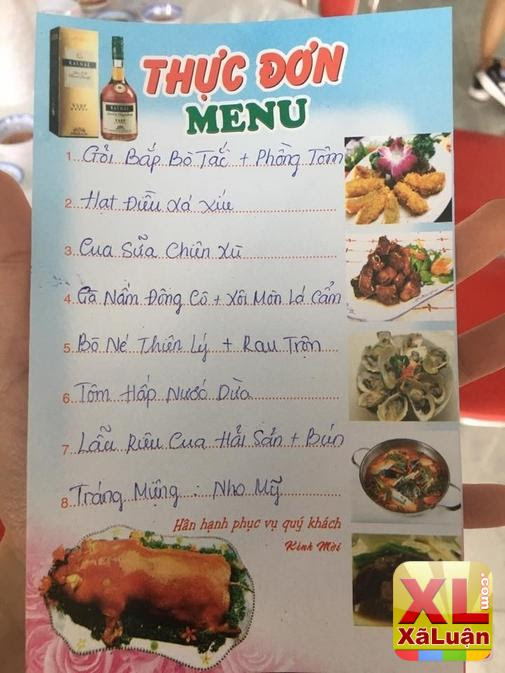 THỰC ĐƠN
MENU
RAYNAL
VSOP
1. Gỏi Bắp Bò Tắc + Phồng Tôm
2. Hạt Điều Xá Xíu
3. Cua Sữa Chiên Xù
4. Gà Nấm Đông Cô + Xôi Mặn Lá Cẩm
5. Bò Né Thiên Lý + Rau Trộn
6. Tôm Hấp Nước Dừa
7. Lẩu Riêu Cua Hải Sản + Bún
8. Tráng Miệng : Nho Mỹ
Hân hạnh phục vụ quý khách
Kính Mời
XL.com
XãLuận